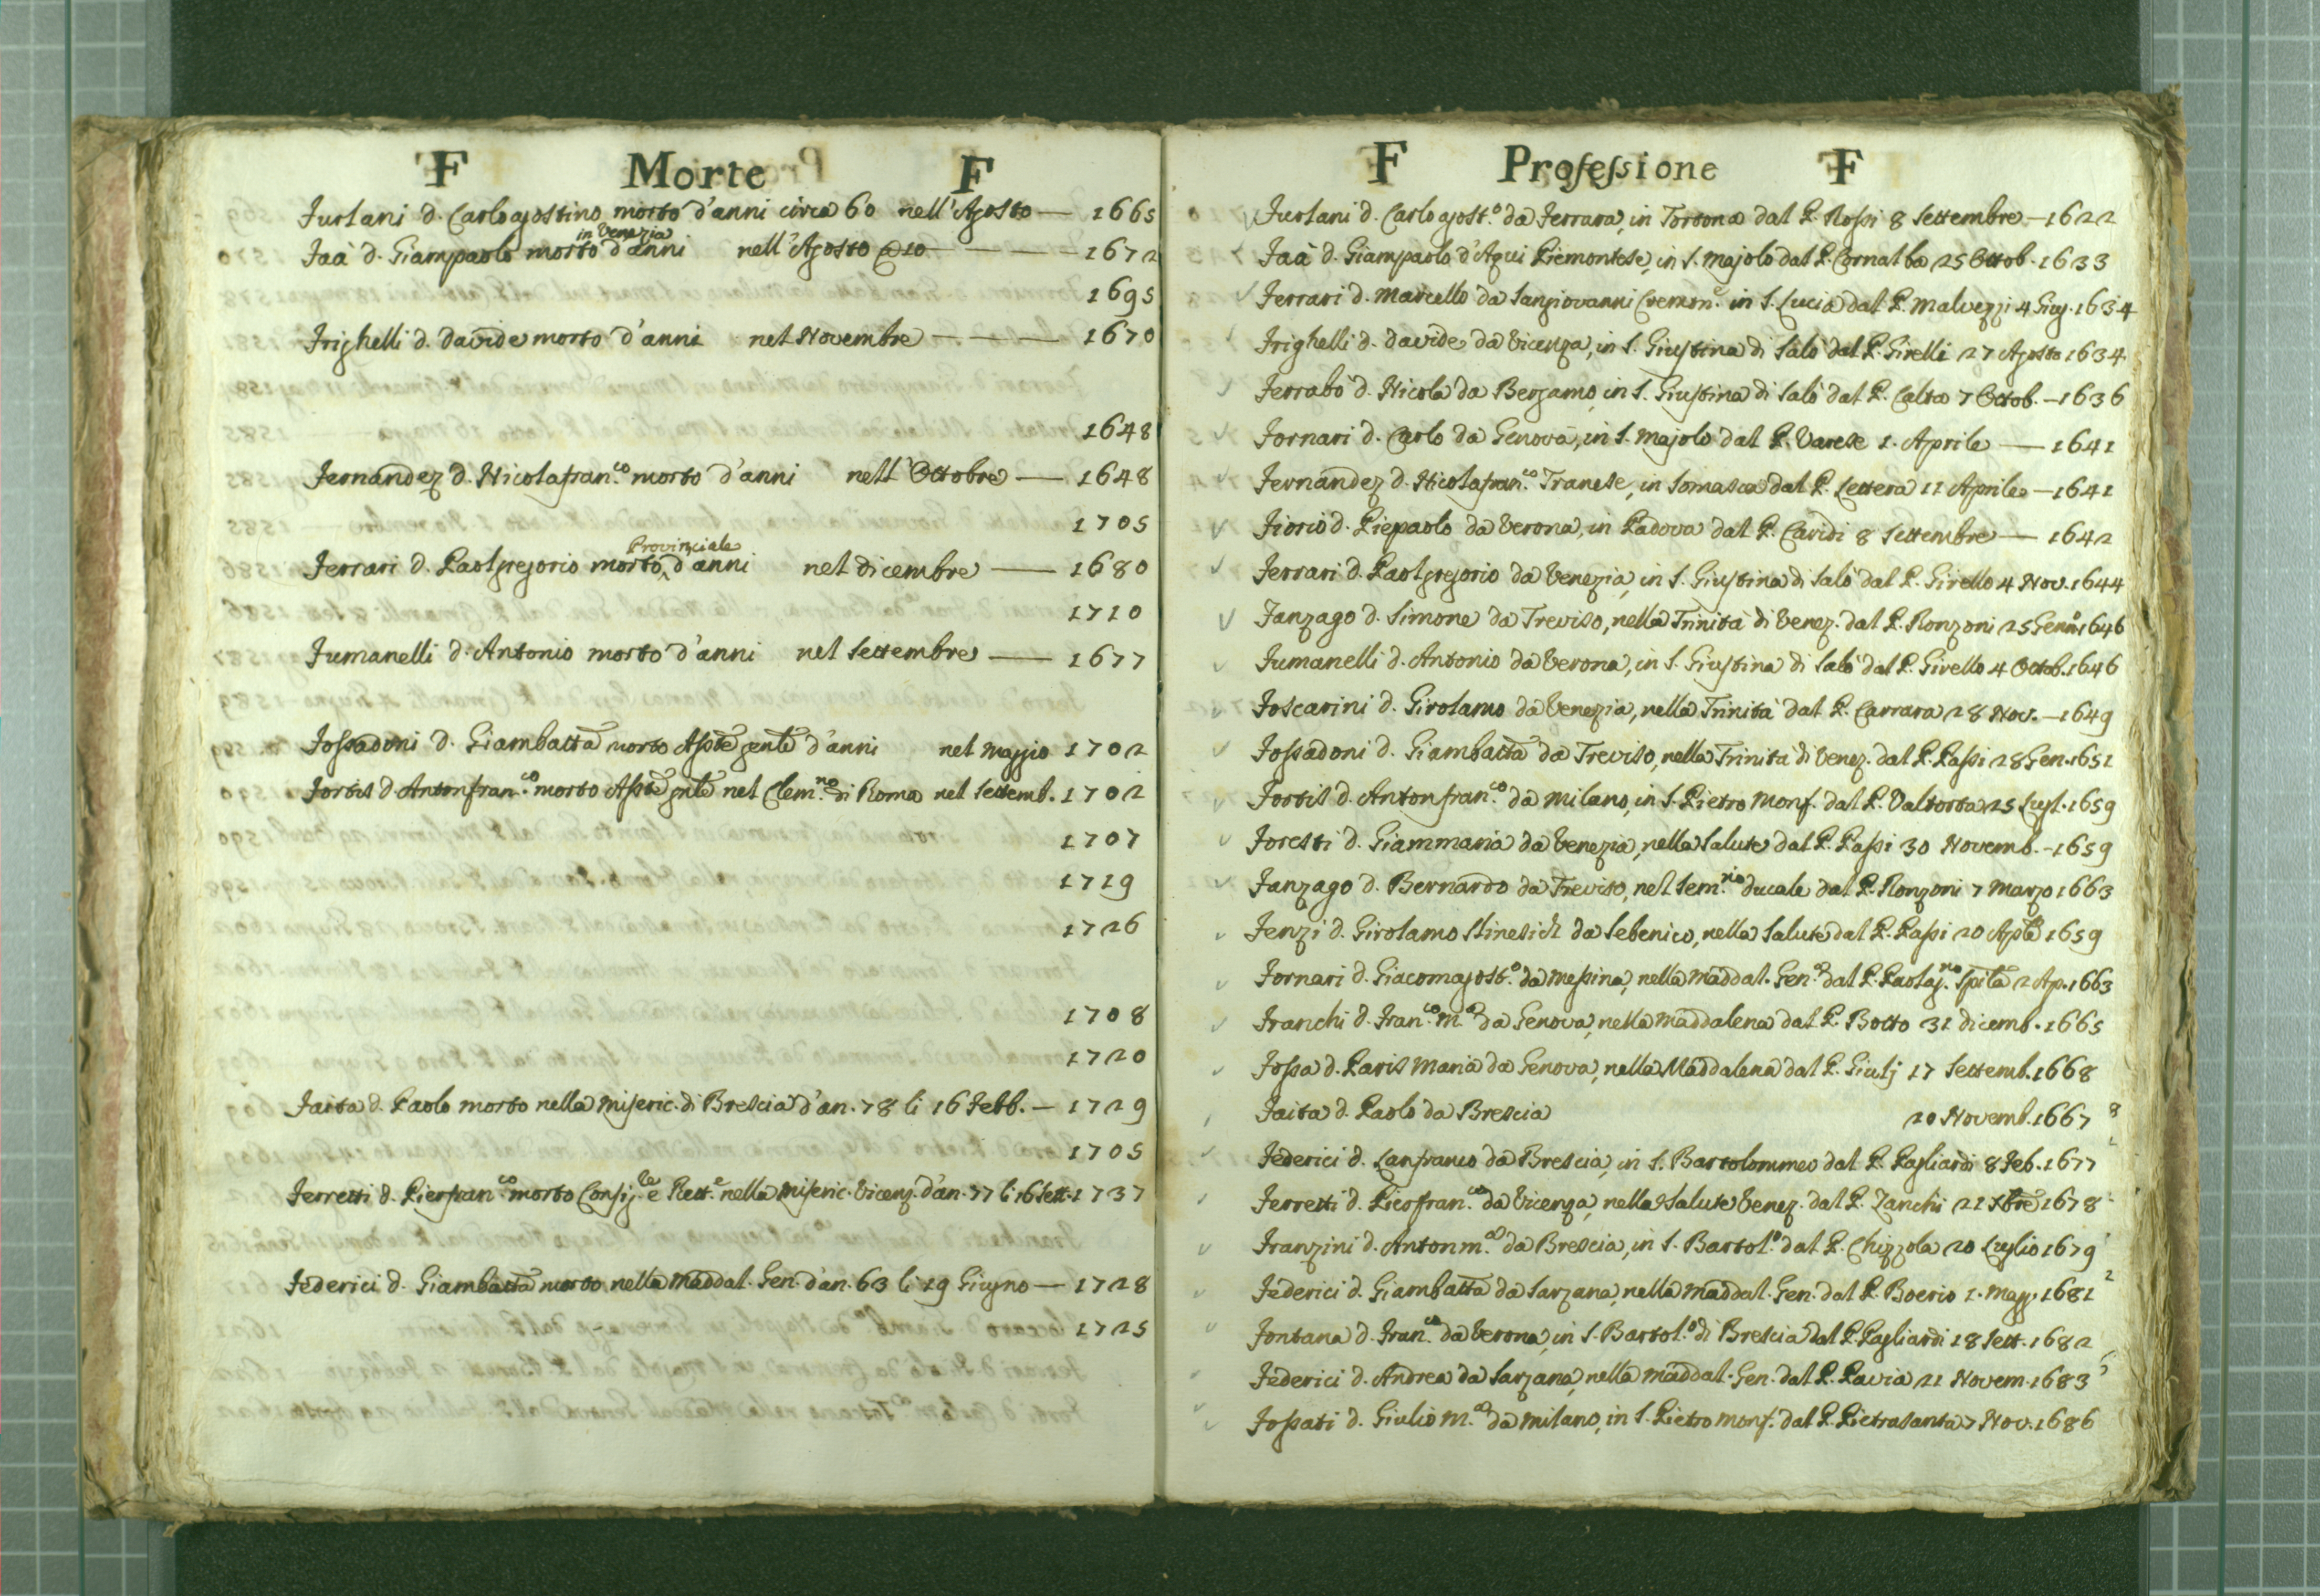 F Morte F
Furlani d. Carlagostino morto d'anni circa 60 nell'Agosto — 1665
in Venezia
Faà d. Giampaolo morto d'anni nell'Agosto 10 — 1672
1695
Frighelli d. Davide morto d'anni nel Novembre — 1670
1648
Fernandez d. Nicolafran.co morto d'anni nell'Ottobre — 1648
1705
Provinciale
Ferrari d. Paolgregorio morto d'anni nel dicembre — 1680
1710
Fumanelli d. Antonio morto d'anni nel Settembre — 1677
Fossadoni d. Giambatta morto d'anni nel Maggio 1702
Fortis d. Antonfran.co morto nel Clem.no di Roma nel Settemb. 1702
1707
1719
1726
1708
1720
Faita d. Paolo morto nella Miseric. di Brescia d'an. 78 li 16 Febb. — 1729
1705
Ferretti d. Pierfran.co morto Consig.re e Rett.e nella Miseric. Vicenz. d'an. 77 li 16 Sett. 1737
Federici d. Giambatta morto nella Maddal. Gen. d'an. 63 li 19 Giugno — 1728
1725
F Professione F
Furlani d. Carlagost.o da Ferrara, in Tortona dal P. Rossi 8 Settembre — 1622
Faà d. Giampaolo d'Aqui Piemontese, in S. Majolo dal P. Cornalba 25 Ottob. 1633
Ferrari d. Marcello da Sangiovanni Cremon.e in S. Lucia dal P. Malvezzi 4 Giug. 1634
Frighelli d. Davide da Vicenza, in S. Giustina di Salò dal P. Girelli 27 Agosto 1634
Ferrabò d. Nicola da Bergamo, in S. Giustina di Salò dal P. Calta 7 Ottob. — 1636
Fornari d. Carlo da Genova, in S. Majolo dal P. Varese 1. Aprile — 1641
Fernandez d. Nicolafran.co Tranese, in Somasca dal P. Lettera 11 Aprile — 1641
Fiorio d. Piepaolo da Verona, in Padova dal P. Cavidi 8 Settembre — 1642
Ferrari d. Paolgregorio da Venezia, in S. Giustina di Salò dal P. Girello 4 Nov. 1644
Fanzago d. Simone da Treviso, nella Trinità di Venez. dal P. Ronzoni 25 Genn. 1646
Fumanelli d. Antonio da Verona, in S. Giustina di Salò dal P. Girello 4 Ottob. 1646
Foscarini d. Girolamo da Venezia, nella Trinità dal P. Carrara 28 Nov. — 1649
Fossadoni d. Giambatta da Treviso, nella Trinità di Venez. dal P. Passi 28 Gen. 1651
Fortis d. Antonfran.co da Milano, in S. Pietro Monf. dal P. Valtorta 25 Lugl. 1659
Foresti d. Giammaria da Venezia, nella Salute dal P. Passi 30 Novemb. — 1659
Fanzago d. Bernardo da Treviso, nel Sem.rio ducale dal P. Ronzoni 7 Marzo 1663
Fenzi d. Girolamo da Sebenico, nella Salute dal P. Passi 20 1659
Fornari d. Giacomagost.o da Messina, nella Maddal. Gen.a dal P. Paolag.no Spila 2 Ap. 1663
Franchi d. Fran.co M.a da Genova, nella Maddalena dal P. Botto 31 dicemb. 1665
Fossa d. Paris Maria da Genova, nella Maddalena dal P. Giulj 17 Settemb. 1668
Faita d. Paolo da Brescia 20 Novemb. 1667
Federici d. Lanfranco da Brescia, in S. Bartolommeo dal P. Pagliardi 8 Feb. 1677
Ferretti d. Pierfran.co da Vicenza, nella Salute Venez. dal P. Zanchi 21 Xbre 1678
Franzini d. Antonm.a da Brescia, in S. Bartol.o dal P. Chizzola 20 Luglio 1679
Federici d. Giambatta da Sarzana, nella Maddal. Gen. dal P. Boerio 1. Magg. 1681
Fontana d. Fran.co da Verona, in S. Bartol.o di Brescia dal P. Pagliardi 18 Sett. 1682
Federici d. Andrea da Sarzana, nella Maddal. Gen. dal P. Pavia 21 Novem. 1683
Fossati d. Giulio M.a da Milano, in S. Pietro Monf. dal P. Pietrasanta 7 Nov. 1686